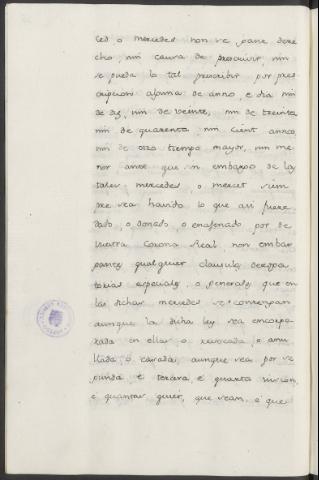 ced o mercedes non se pare dere
cho, nin causa de prescrivir, nin
se pueda la tal prescribir por pres
cripcion alguna de anno, e dia nin
de diez, nin de veinte, nin de treinta
nin de quarenta, nin cient annos,
nin de otro tiempo mayor, nin me
nor ante que sin embargo de las
tales mercedes, o merced siem
pre sea havido lo que asi fuere
dado, o donado, o enagenado por de
nuestra Corona Real, non embar
gantes qualquier clausulas deroga
torias especiales, o generales, que en
las dichas mercedes se contengan
aunque la dicha ley sea encorpo
rada en ellas o revocada, o anu
llada, o casada, aunque sea por se
gunda, e tercera, e quarta jusion,
e quantas quier, que sean, e que